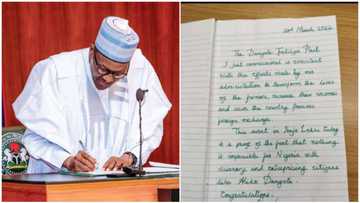 22nd March, 2022
The Dangote Fertilizer Plant
I just commissioned is consistent
with the efforts made by our
administration to transform the lives
of the farmers, increase their incomes
and save the country precious
foreign exchange.
This event in Ibeju Lekki today
is a proof of the fact that nothing
is impossible for Nigeria with
visionary and enterprising citizens
like Aliko Dangote.
Congratulations.